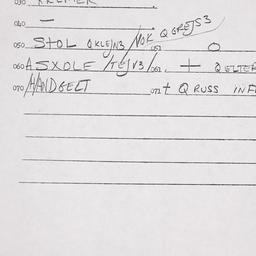 030 KREMER
040 —
050 STOL QKLEJN3/VOK QGREJS3
051 O
060 ASXOLF /TEJV3/ 061. + Q ELTER
070 HANDGELT 071 + Q RUSS INF